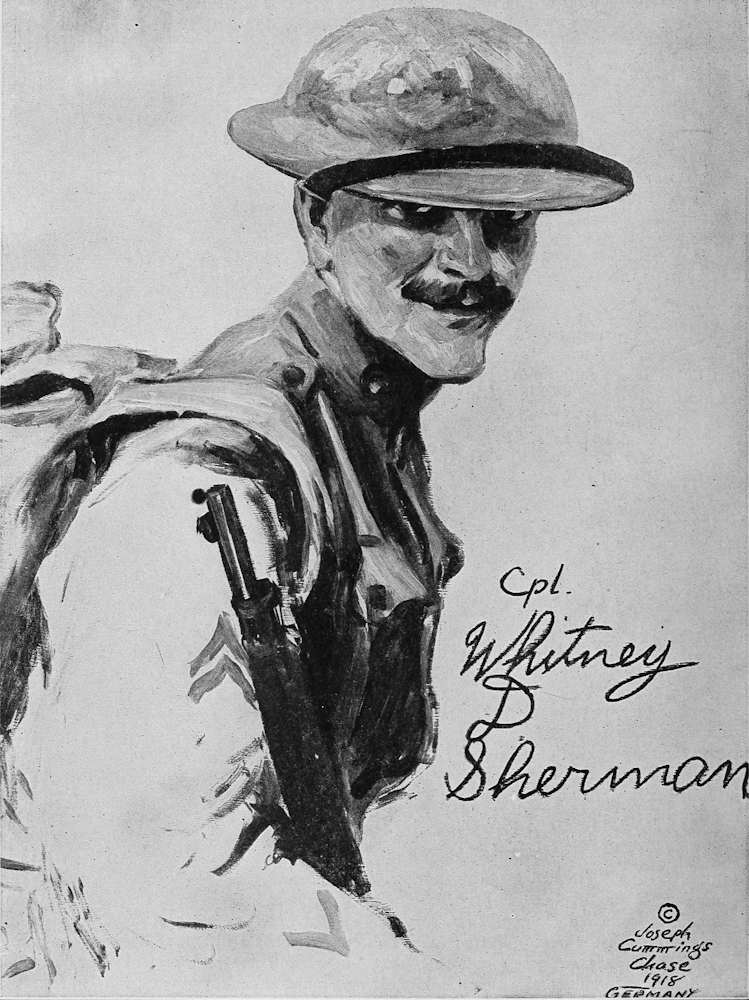 Cpl.
Whitney
D
Sherman
©
Joseph
Cummings
Chase
1918
GERMANY